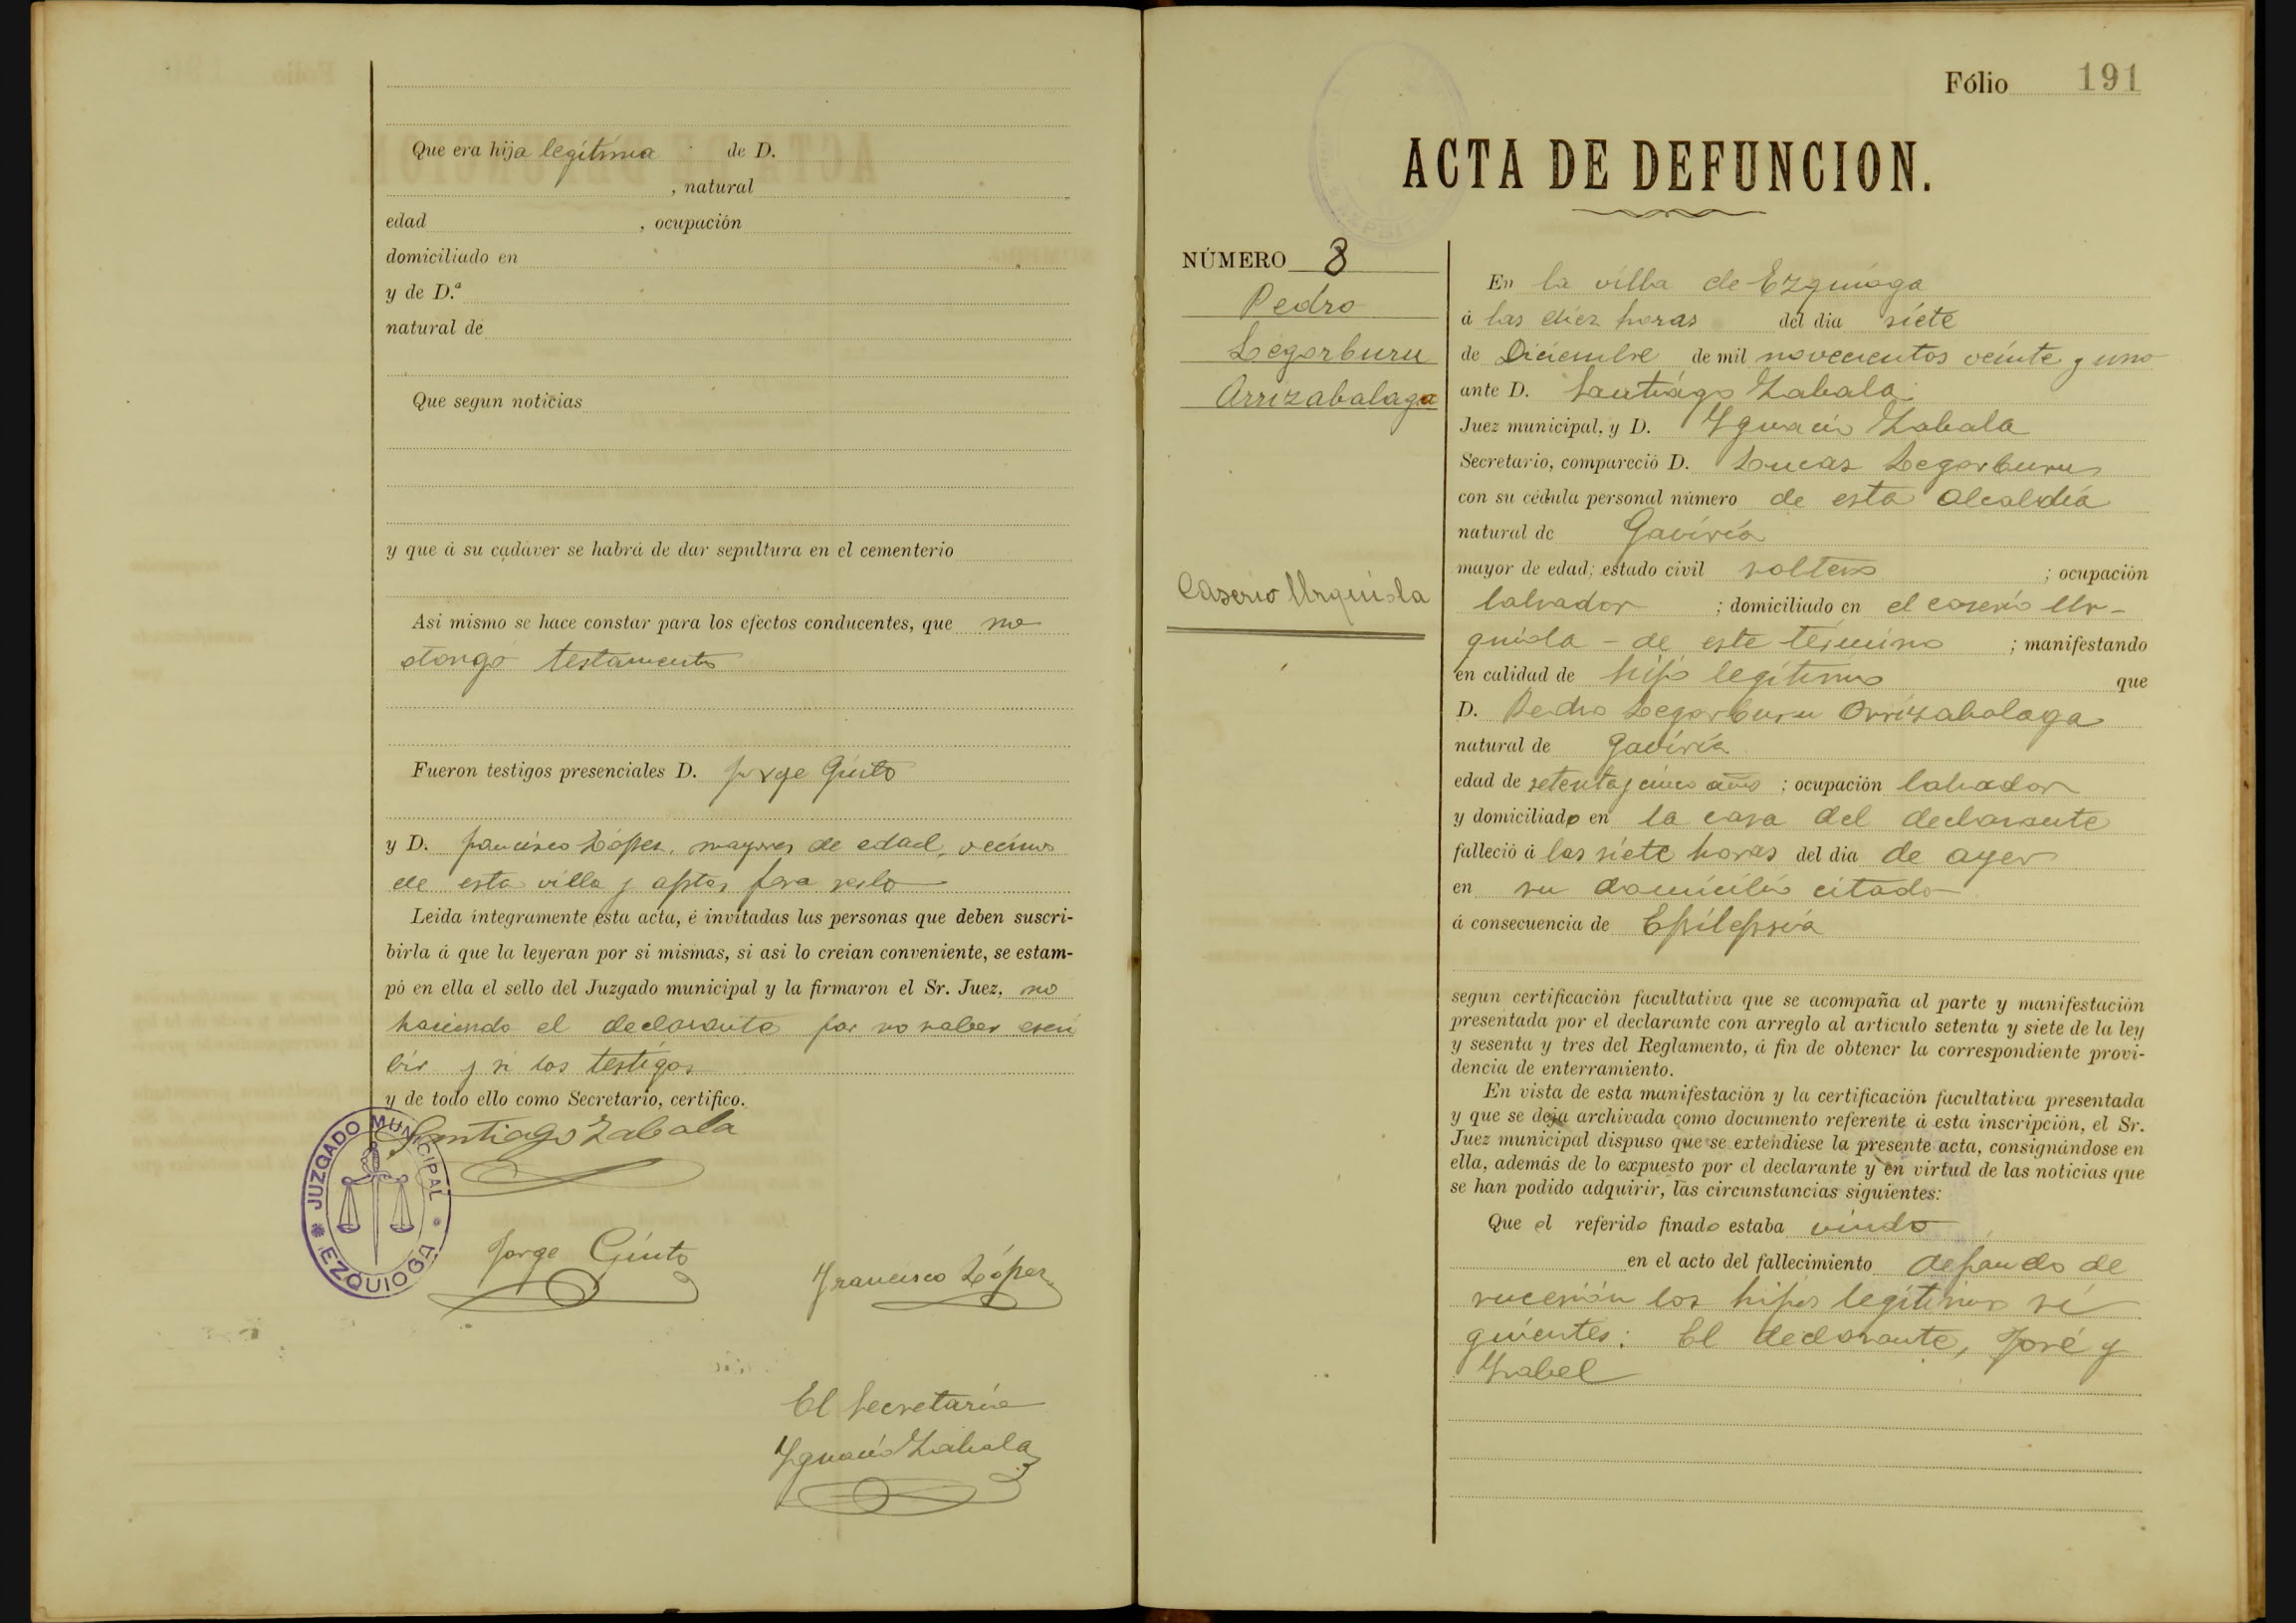 Que era hija legítima de D.
, natural
edad , ocupación
domiciliado en
y de D.ª
natural de
Que segun noticias
y que á su cadáver se habrá de dar sepultura en el cementerio
Asi mismo se hace constar para los efectos conducentes, que no
otorgó testamento
Fueron testigos presenciales D. Jorge Guito
y D. Francisco López, mayores de edad, vecinos
de esta villa y aptos para serlo
Leida íntegramente esta acta, é invitadas las personas que deben suscri-
birla á que la leyeran por si mismas, si asi lo creian conveniente, se estam-
pó en ella el sello del Juzgado municipal y la firmaron el Sr. Juez, no
haciendo el declarante por no saber escri
bir y si los testigos
y de todo ello como Secretario, certifico.
Santiago Zabala
JUZGADO MUNICIPAL
EZQUIOGA
Jorge Guito
Francisco López
El Secretario
Ygnacio Zabala
Fólio 191
ACTA DE DEFUNCION.
NÚMERO 8
Pedro
Legorburu
Arrizabalaga
Caserio Urquiola
En la villa de Ezquioga
á las diez horas del dia siete
de Diciembre de mil novecientos veinte y uno
ante D. Santiago Zabala
Juez municipal, y D. Ygnacio Zabala
Secretario, compareció D. Lucas Legorburu
con su cédula personal número de esta Alcaldía
natural de Gaviria
mayor de edad; estado civil soltero ; ocupación
labrador ; domiciliado en el caserío Ur-
quiola - de este término ; manifestando
en calidad de hijo legítimo que
D. Pedro Legorburu Arrizabalaga
natural de Gaviria
edad de setenta y cinco años ; ocupación labrador
y domiciliado en la casa del declarante
falleció á las siete horas del dia de ayer
en su domicilio citado
á consecuencia de Epilepsia
segun certificación facultativa que se acompaña al parte y manifestación
presentada por el declarante con arreglo al artículo setenta y siete de la ley
y sesenta y tres del Reglamento, á fin de obtener la correspondiente provi-
dencia de enterramiento.
En vista de esta manifestación y la certificación facultativa presentada
y que se deja archivada como documento referente á esta inscripción, el Sr.
Juez municipal dispuso que se extendiese la presente acta, consignándose en
ella, además de lo expuesto por el declarante y en virtud de las noticias que
se han podido adquirir, las circunstancias siguientes:
Que el referido finado estaba viudo
en el acto del fallecimiento dejando de
sucesión los hijos legítimos si
guientes: El declarante, José y
Ysabel